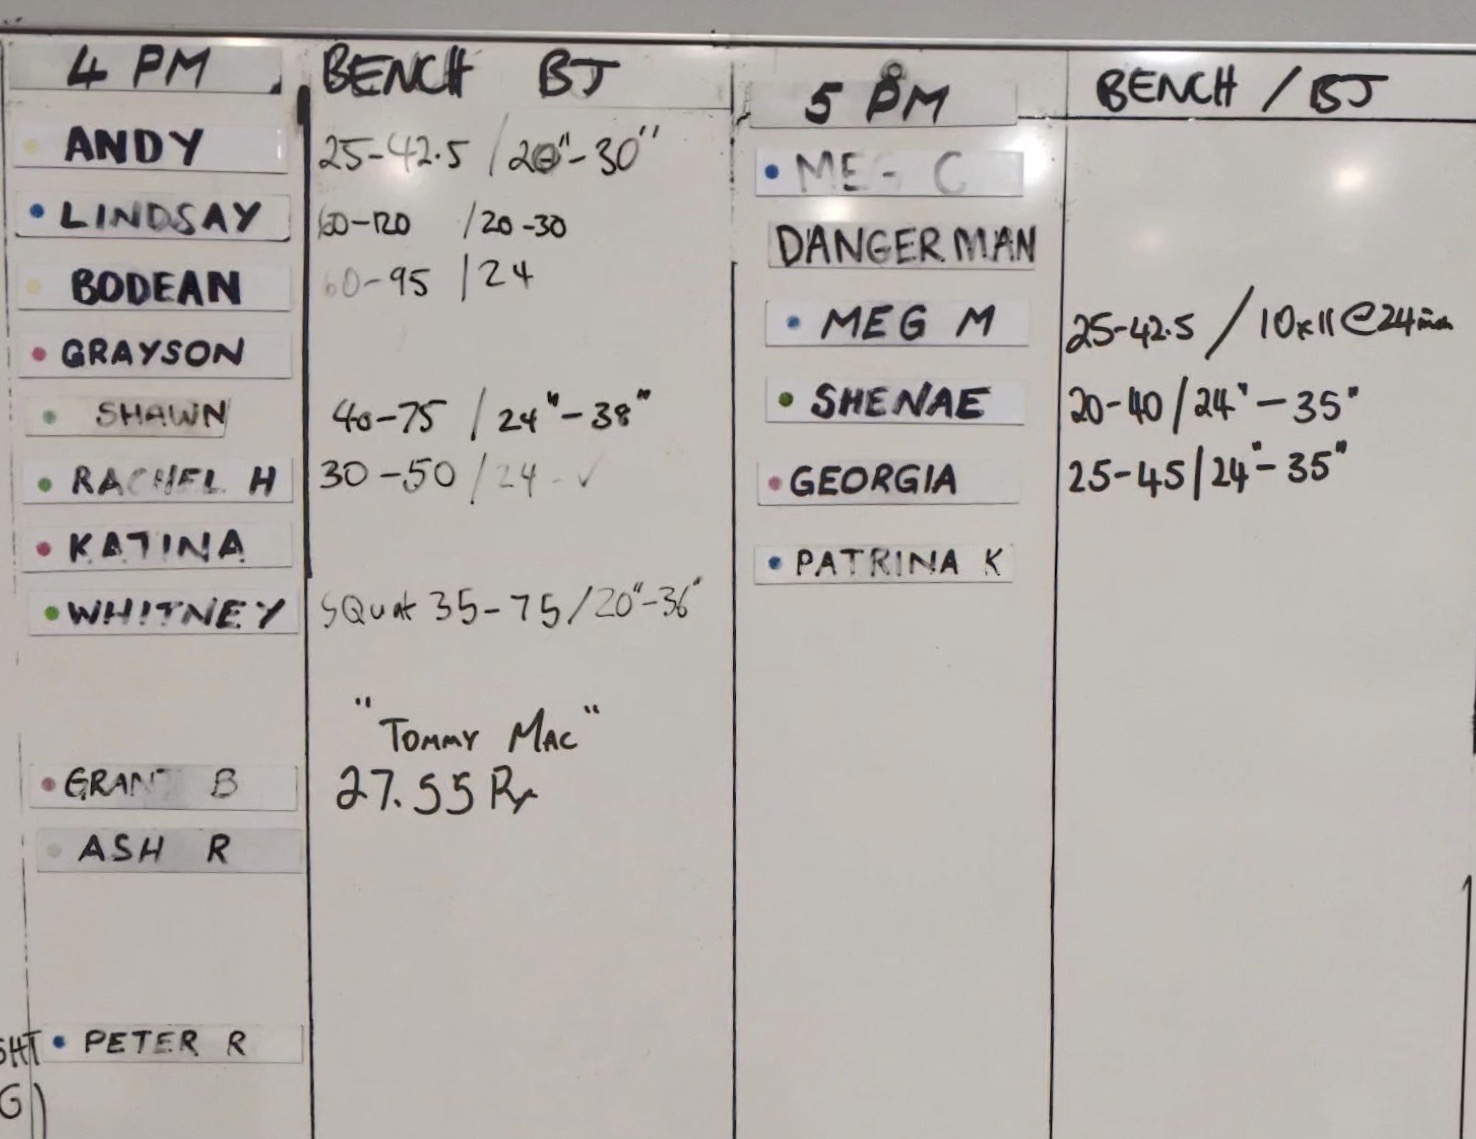 4 PM BENCH BJ
ANDY 25-42.5 / 20"-30"
LINDSAY 60-120 / 20-30
BODEAN 60-95 / 24
GRAYSON
SHAWN 40-75 / 24"-38"
RACHEL H 30-50 / 24 - ✓
KATINA
WHITNEY SQuat 35-75 / 20"-36"
"TOMMY MAC"
GRANT B 27.55 Rx
ASH R
PETER R
5 PM BENCH / BJ
MEG C
DANGERMAN
MEG M 25-42.5 / 10x11@24
SHENAE 20-40 / 24"-35"
GEORGIA 25-45 / 24"-35"
PATRINA K